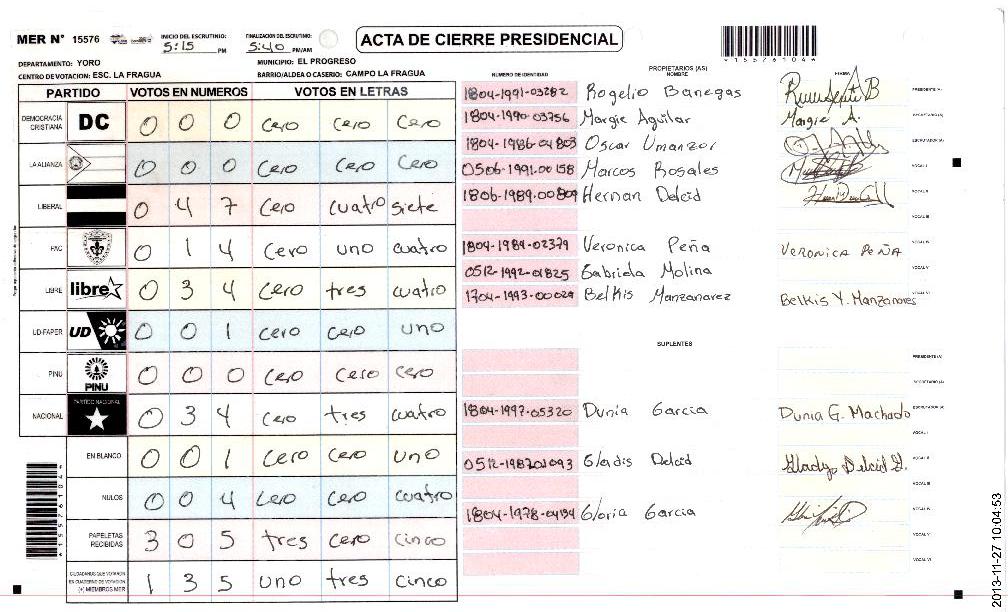 MER N° 15576
INICIO DEL ESCRUTINIO: 5:15 PM
FINALIZACION DEL ESCRUTINIO: 5:40 PM/AM
ACTA DE CIERRE PRESIDENCIAL
DEPARTAMENTO: YORO
MUNICIPIO: EL PROGRESO
CENTRO DE VOTACION: ESC. LA FRAGUA
BARRIO/ALDEA O CASERIO: CAMPO LA FRAGUA
PARTIDO VOTOS EN NUMEROS VOTOS EN LETRAS
DEMOCRACIA CRISTIANA DC 0 0 0 Cero Cero Cero
LA ALIANZA 0 0 0 Cero Cero Cero
LIBERAL 0 4 7 Cero cuatro siete
PAC 0 1 4 Cero uno cuatro
LIBRE libre 0 3 4 Cero tres cuatro
UD-FAPER UD 0 0 1 Cero Cero uno
PINU PINU 0 0 0 Cero Cero Cero
NACIONAL PARTIDO NACIONAL 0 3 4 Cero tres cuatro
EN BLANCO 0 0 1 Cero Cero uno
NULOS 0 0 4 Cero Cero cuatro
PAPELETAS RECIBIDAS 3 0 5 tres Cero cinco
CIUDADANOS QUE VOTARON EN CUADERNO DE VOTACION (+) MIEMBROS MER 1 3 5 uno tres cinco
*15576104*
NUMERO DE IDENTIDAD PROPIETARIOS (AS) NOMBRE FIRMA
1804-1991-03282 Rogelio Banegas PRESIDENTE(A)
1804-1990-03756 Margie Aguilar Margie A. SECRETARIO(A)
1804-1986-04803 Oscar Umanzor ESCRUTADOR(A)
0506-1991-00158 Marcos Rosales VOCAL I
1806-1989-00809 Hernan Delcid VOCAL II
VOCAL III
1804-1989-02379 Veronica Peña VERONICA PEÑA VOCAL IV
0512-1992-01825 Gabriela Molina VOCAL V
1704-1993-00029 Belkis Manzanarez Belkis Y. Manzanares VOCAL VI
SUPLENTES
PRESIDENTE(A)
SECRETARIO(A)
1804-1997-05320 Dunia Garcia Dunia G. Machado ESCRUTADOR(A)
VOCAL I
0512-1987-01093 Gladis Delcid Gladys Delcid VOCAL II
VOCAL III
1804-1978-04194 Gloria Garcia VOCAL IV
VOCAL V
VOCAL VI
*15576104*
2013-11-27 10:04:53